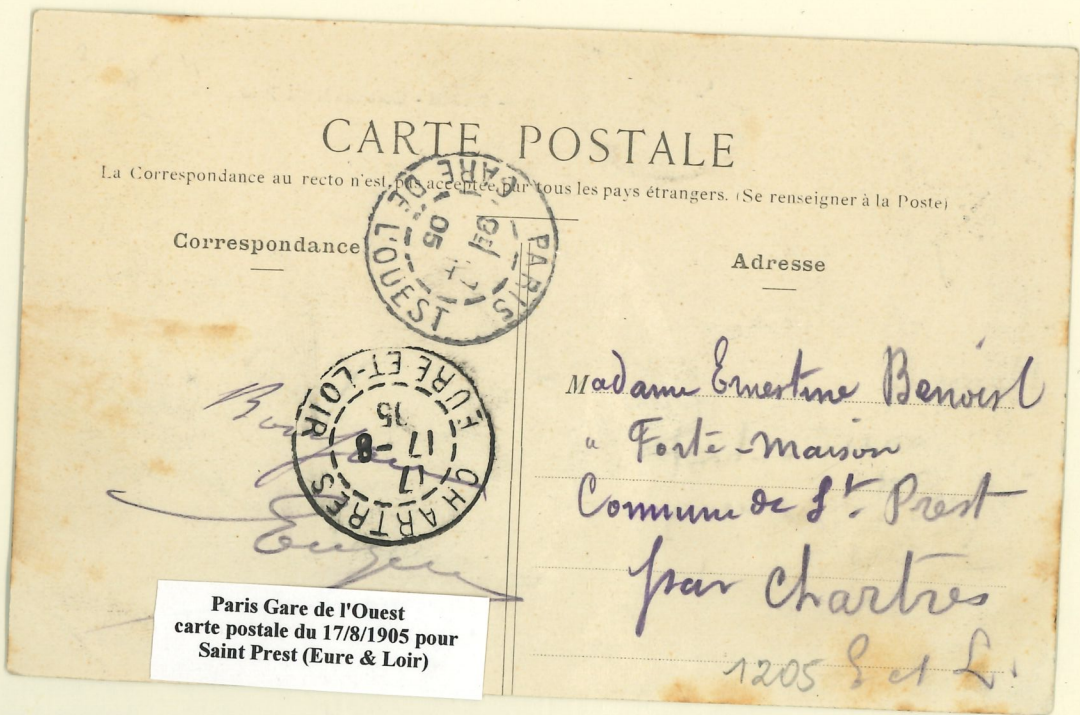 CARTE POSTALE
La Correspondance au recto n'est pas acceptée par tous les pays étrangers. (Se renseigner à la Poste)
Correspondance
PARIS GARE DE L'OUEST
05
CHARTRES EURE-ET-LOIR
17
17 -8
05
Eugène
Adresse
Madame Ernestine Benoist
" Forte-maison
Commune de St. Prest
par Chartres
E et L.
1205
Paris Gare de l'Ouest
carte postale du 17/8/1905 pour
Saint Prest (Eure & Loir)